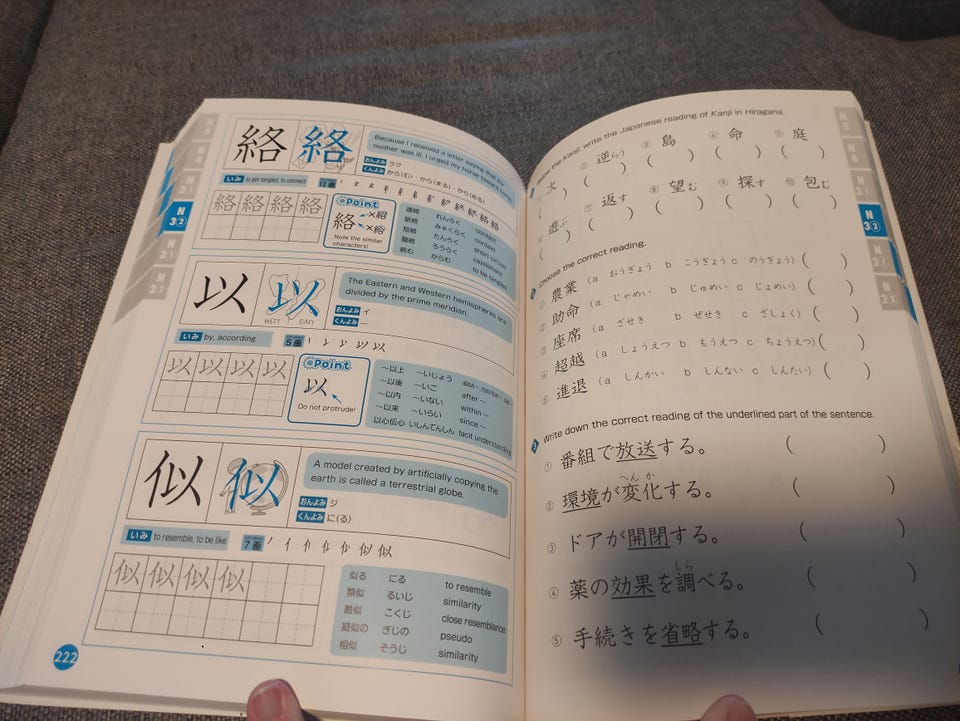 絡 絡
Because I received a letter saying that my
mother was ill, I urged my horse toward home.
おんよみ ラク
くんよみ から(む)・から(まる)・から(める)
いみ to get tangled, to connect
12画
絡 絡 絡 絡
Point
絡 ×紹
×給
Note the similar
characters!
連絡 れんらく contact
脈絡 みゃくらく context
短絡 たんらく short circuit
籠絡 ろうらく cajolement
絡む からむ to be tangled
以 以
WEST EAST
The Eastern and Western hemispheres are
divided by the prime meridian.
おんよみ イ
くんよみ —
いみ by, according
5画
以 以 以 以
Point
以
Do not protrude!
~以上 ~いじょう
~以後 ~いご after ~
~以内 ~いない within ~
~以来 ~いらい since ~
以心伝心 いしんでんしん tacit understanding
似 似
A model created by artificially copying the
earth is called a terrestrial globe.
おんよみ ジ
くんよみ に(る)
いみ to resemble, to be like
7画
似 似 似 似
似る にる to resemble
類似 るいじ similarity
酷似 こくじ close resemblance
疑似の ぎじの pseudo
相似 そうじ similarity
222
N5
N4
N3①
N3②
N2①
N2②
the Kanji, write the Japanese reading of Kanji in Hiragana.
② 逆らう ③ 島 ④ 命 ⑤ 庭
( ) ( ) ( ) ( )
遊ぶ ⑦ 返す ⑧ 望む ⑨ 探す ⑩ 包む
( ) ( ) ( ) ( ) ( )
Choose the correct reading.
① 農業 (a おうぎょう b こうぎょう c のうぎょう) ( )
② 助命 (a じゃめい b じゅめい c じょめい) ( )
③ 座席 (a ざせき b ぜせき c ざしょく) ( )
④ 超越 (a しょうえつ b もうえつ c ちょうえつ) ( )
⑤ 進退 (a しんかい b しんない c しんたい) ( )
3 Write down the correct reading of the underlined part of the sentence.
① 番組で放送する。 ( )
へんか
② 環境が変化する。 ( )
③ ドアが開閉する。 ( )
しら
④ 薬の効果を調べる。 ( )
⑤ 手続きを省略する。 ( )
N5
N4
N3①
N3②
N2①
N2②